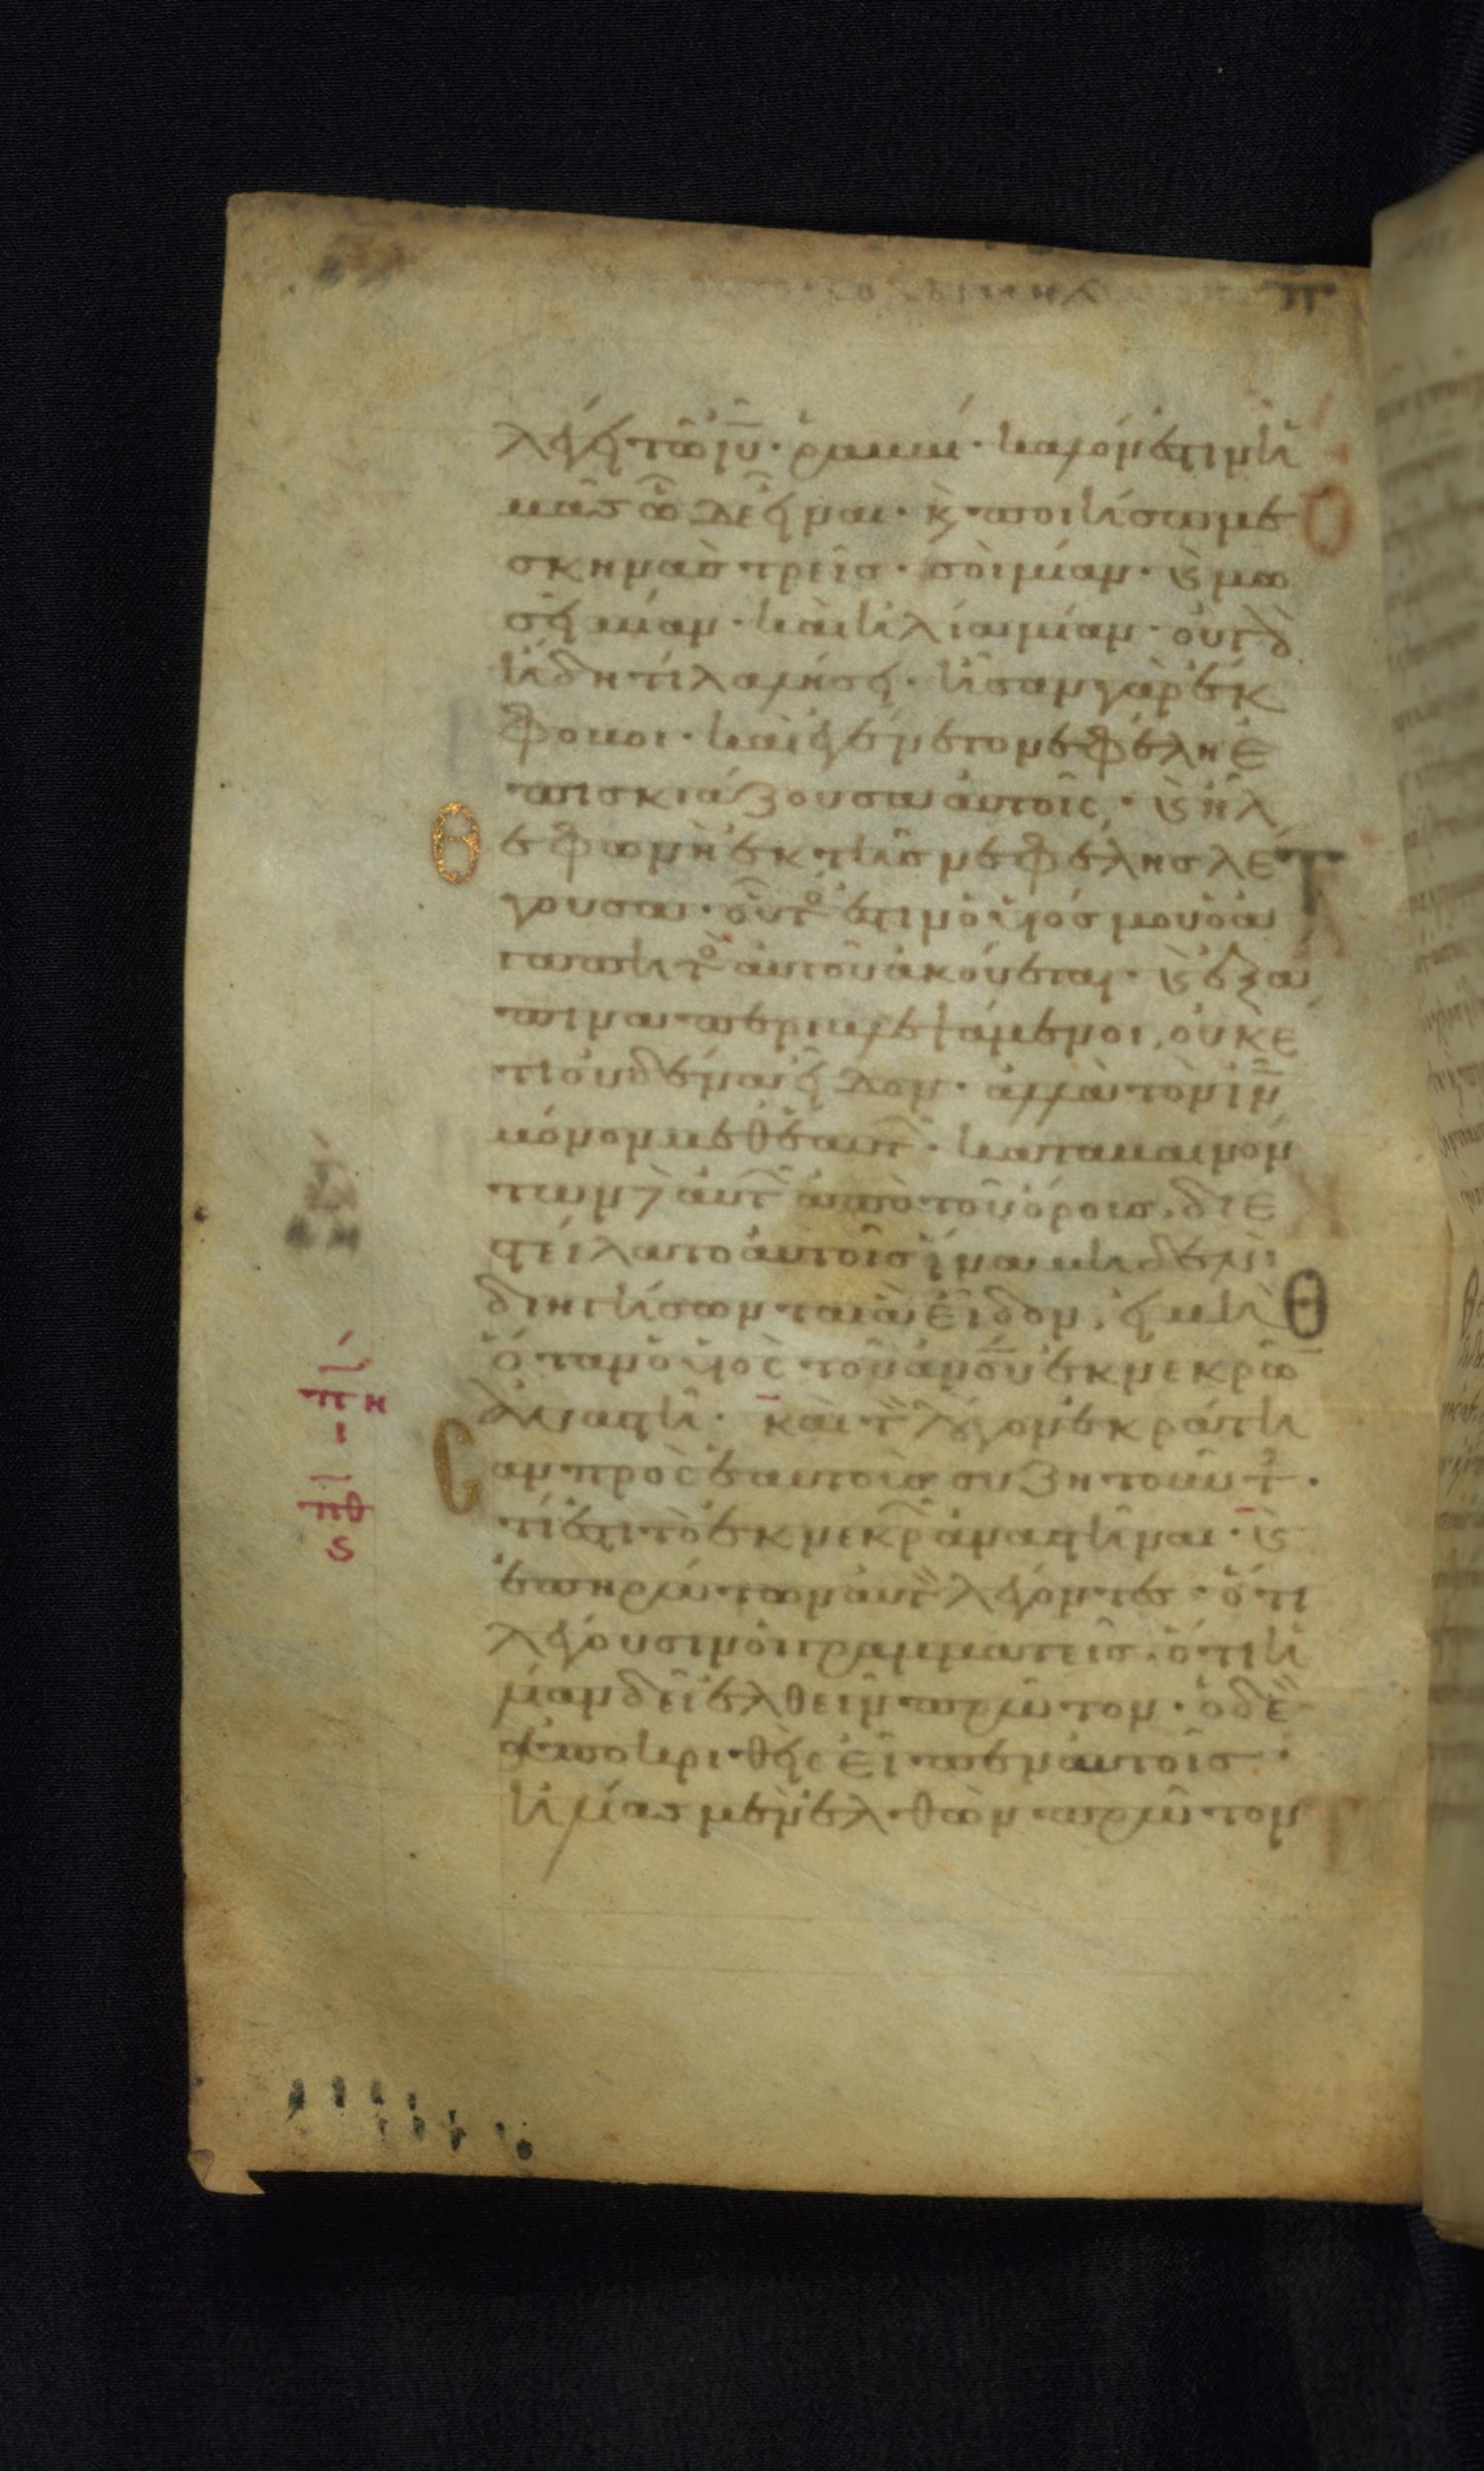 λέγει τῶ ἰῦ· ῥαββί· καλόν ἐστιν ἡ
μᾶς ὧδε εἶναι· κ̀ ποιήσωμε
σκηνὰς τρεῖς· σοὶ μίαν· κ̀ μω
σεῖ μίαν· καὶ ἡλία μίαν· οὐ γὰρ
ἤδη τί λαλήσει· ἦσαν γὰρ ἔκ
φοβοι· καὶ ἐγένετο νεφέλη ἐ
πισκιάζουσα αὐτοῖς· κ̀ ἦλ
θε φωνὴ ἐκ τῆς νεφέλης λέ
γουσα· οὗτο ἐστιν ὁ υἱός μου ὁ ἀ
γαπητὸ αὐτοῦ ἀκούεται· κ̀ ἐξά
πινα περιβλεψάμενοι, οὐκέ
τι οὐδένα εἶδον· ἀλλὰ τὸν ἰν̄
μόνον μεθ' ἑαυτ· καταβαινόν
των δὲ αὐτ ἀπὸ τοῦ ὄρους, διε
στείλατο αὐτοῖς ἵνα μηδενὶ
διηγήσωνται ἃ εἶδον, εἰ μὴ
ὅταν ὁ υἱὸς τοῦ ἀνοῦ ἐκ νεκρῶ
ἀναστῆ· καὶ τ λόγον ἐκράτη
σαν πρὸς ἑαυτοὺς συζητοῦντ·
τί ἐστι τὸ ἐκ νεκρ ἀναστῆναι· κ̀
ἐπηρώτων αὐτ λέγοντες· ὅτι
λέγουσιν οἱ γραμματεῖς· ὅτι ἠ
λίαν δεῖ ἐλθεῖν πρῶτον· ὁ δὲ
ἀποκριθεὶς εἶπεν αὐτοῖς·
ἠλίας μὲν ἐλθὼν πρῶτον